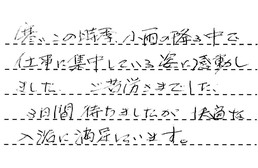 寒いこの時季 小雨の降る中で
仕事に集中している姿に感動し
ました ご苦労さまでした
3日間 待ちましたが 快適な
入浴に満足しています。